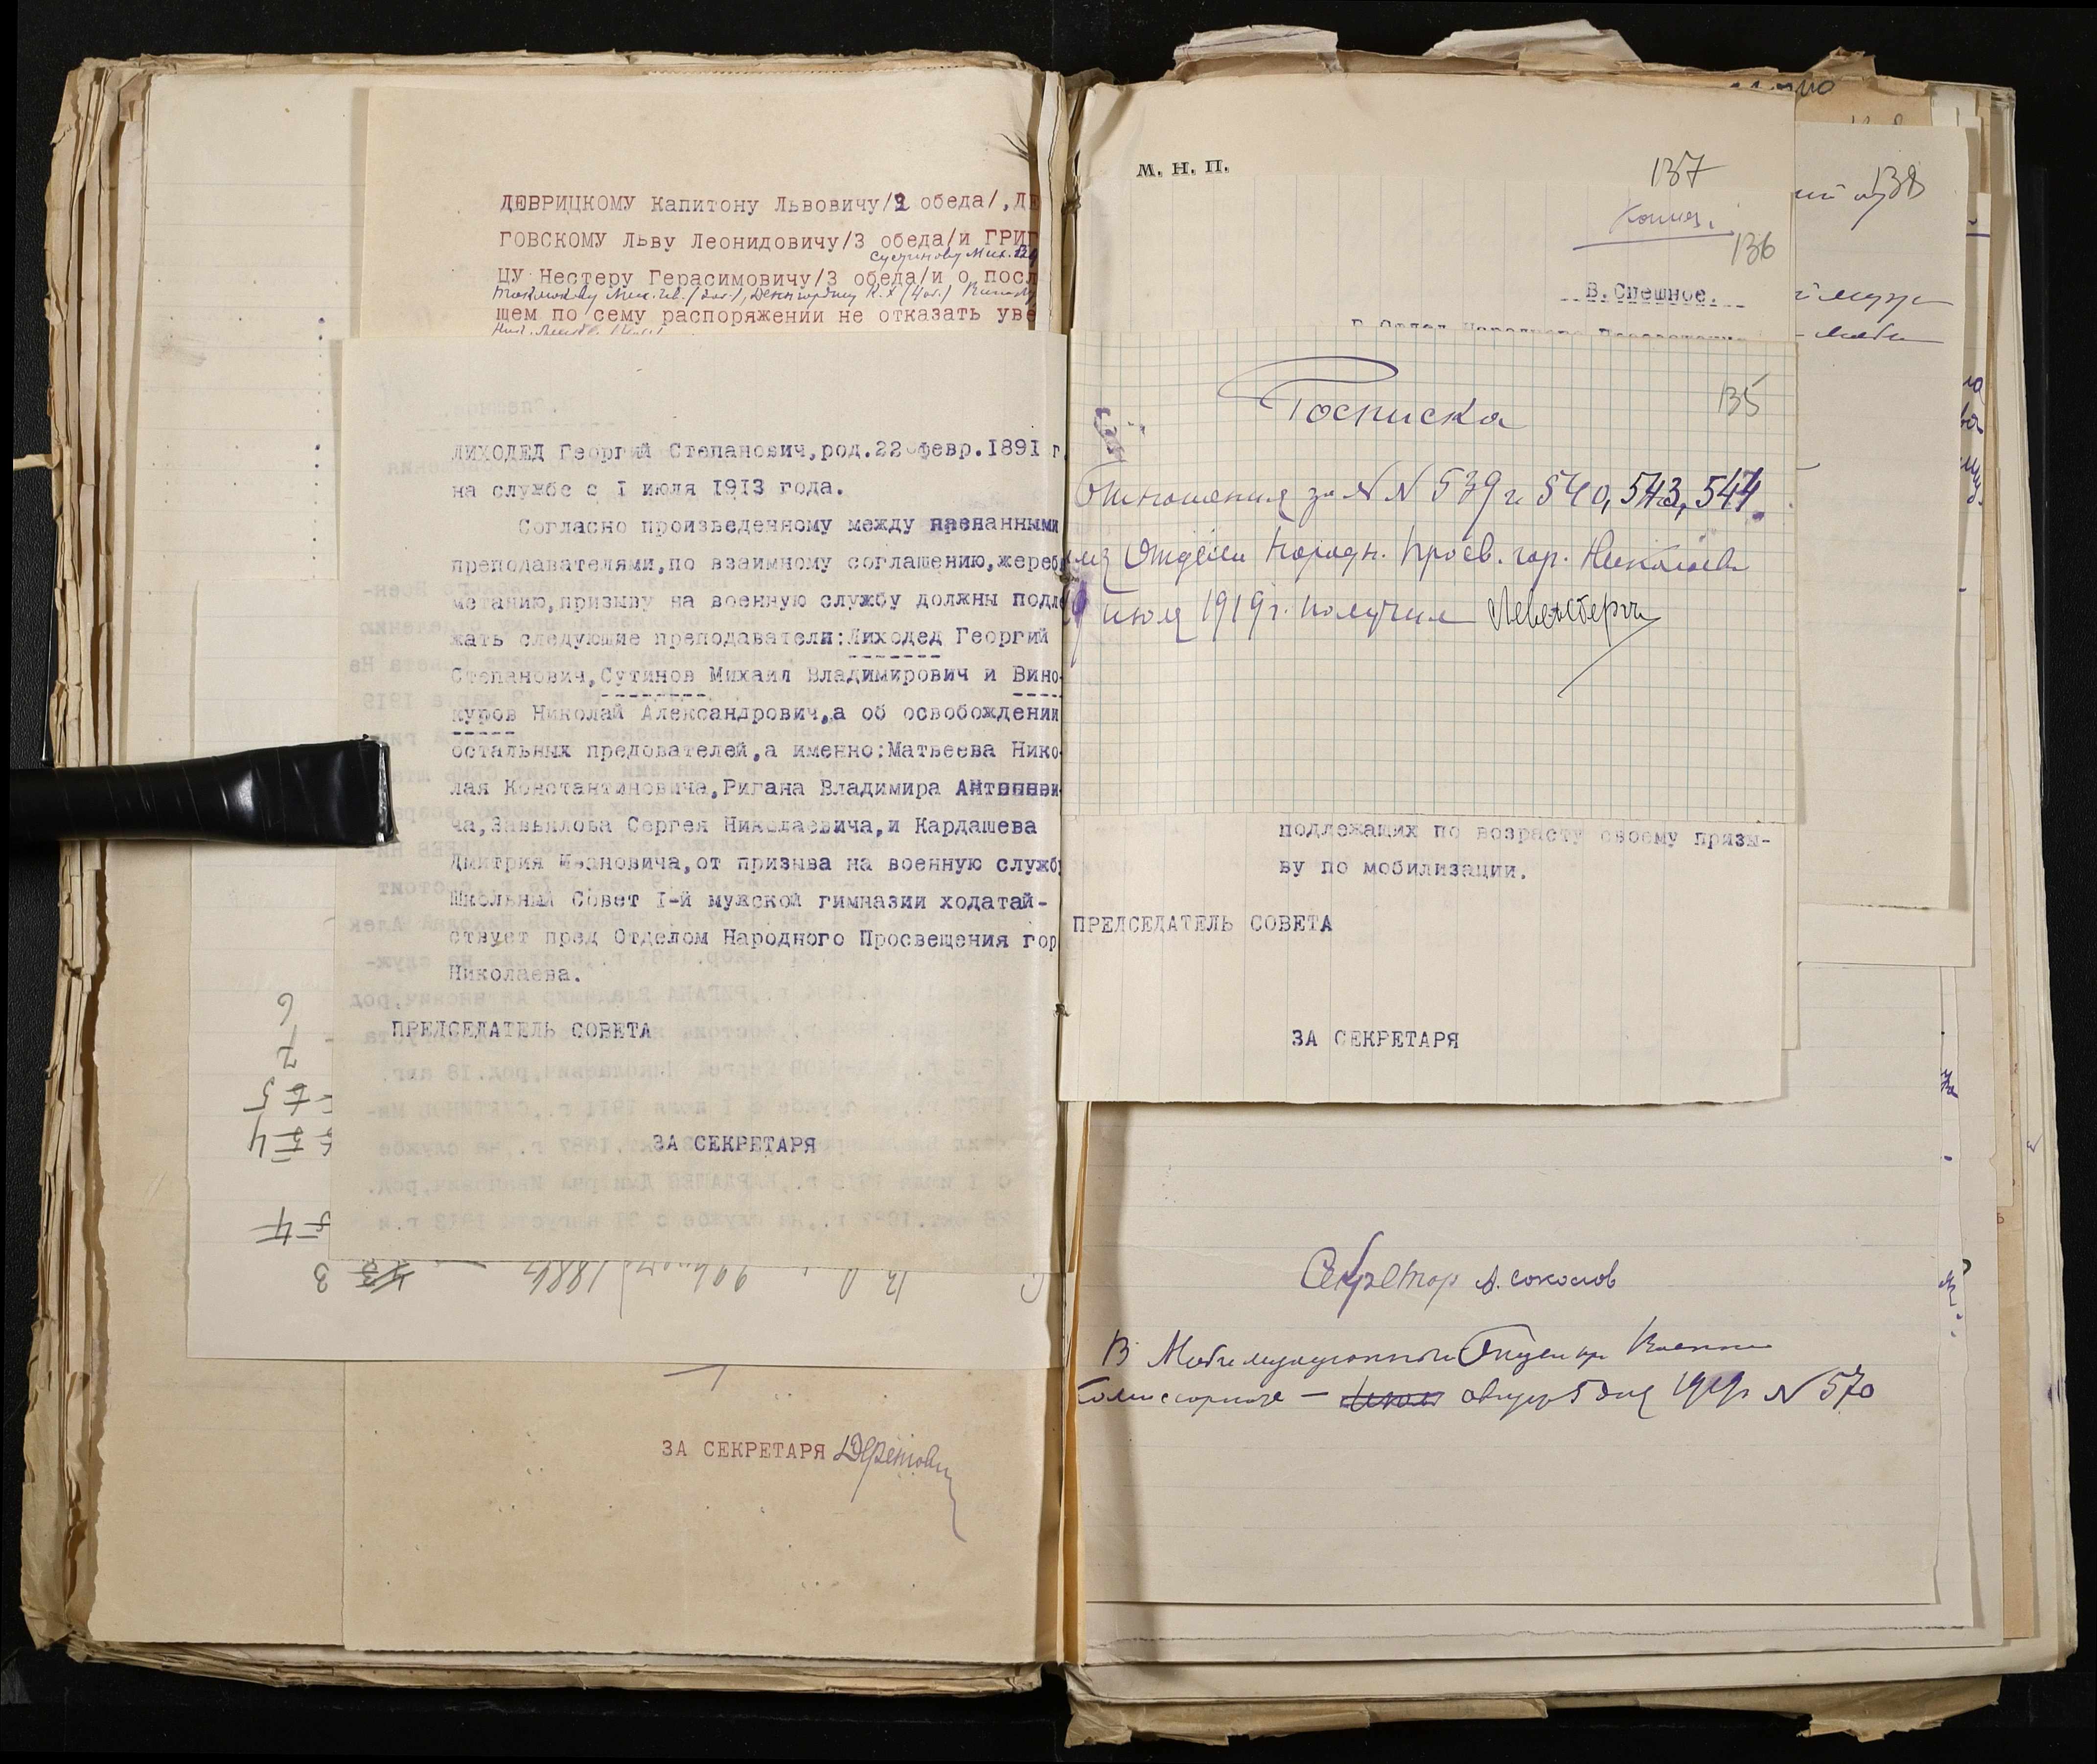 ДЕВРИЦКОМУ Капитону Львовичу/2 обеда/,ДЕ
ГОВСКОМУ Льву Леонидовичу/3 обеда/и ГРИГ
ЦУ Нестеру Герасимовичу/3 обеда/и о посл
щем по сему распоряжении не отказать уве
ЛИХОДЕД Георгий Степанович,род.22 февр.1891 г
на службе с I июля 1913 года.
Согласно произведенному между названными
преподавателями,по взаимному соглашению,жереб
метанию,призыву на военную службу должны подле
жать следующие преподаватели:Лиходед Георгий
Степанович,Сутинов Михаил Владимирович и Вино-
куров Николай Александрович,а об освобождении
остальных предователей,а именно:Матвеева Нико-
лая Константиновича,Ригана Владимира Антонови-
ча,Завьялова Сергея Николаевича,и Кардашева
Дмитрия Ивановича,от призыва на военную службу
Школьный Совет I-й мужской гимназии ходатай-
ствует пред Отделом Народного Просвещения гор
Николаева.
ПРЕДСЕДАТЕЛЬ СОВЕТА
ЗА СЕКРЕТАРЯ
6
7
5
4
1886
3
ЗА СЕКРЕТАРЯ
М. Н. П.
137
Копия.
136
В.Спешное.
138
Росписка
135
Отношения за NN 539 и 540, 543, 544.
из Отдела Народн. Просв. гор. Николаева
июля 1919 г. получил
подлежащих по возрасту своему призы-
ву по мобилизации.
ПРЕДСЕДАТЕЛЬ СОВЕТА
ЗА СЕКРЕТАРЯ
Секретар А. Соколов
В Мобилизационный Отдел при Военном
Комиссариате — август 5 дня 1919 г N 570